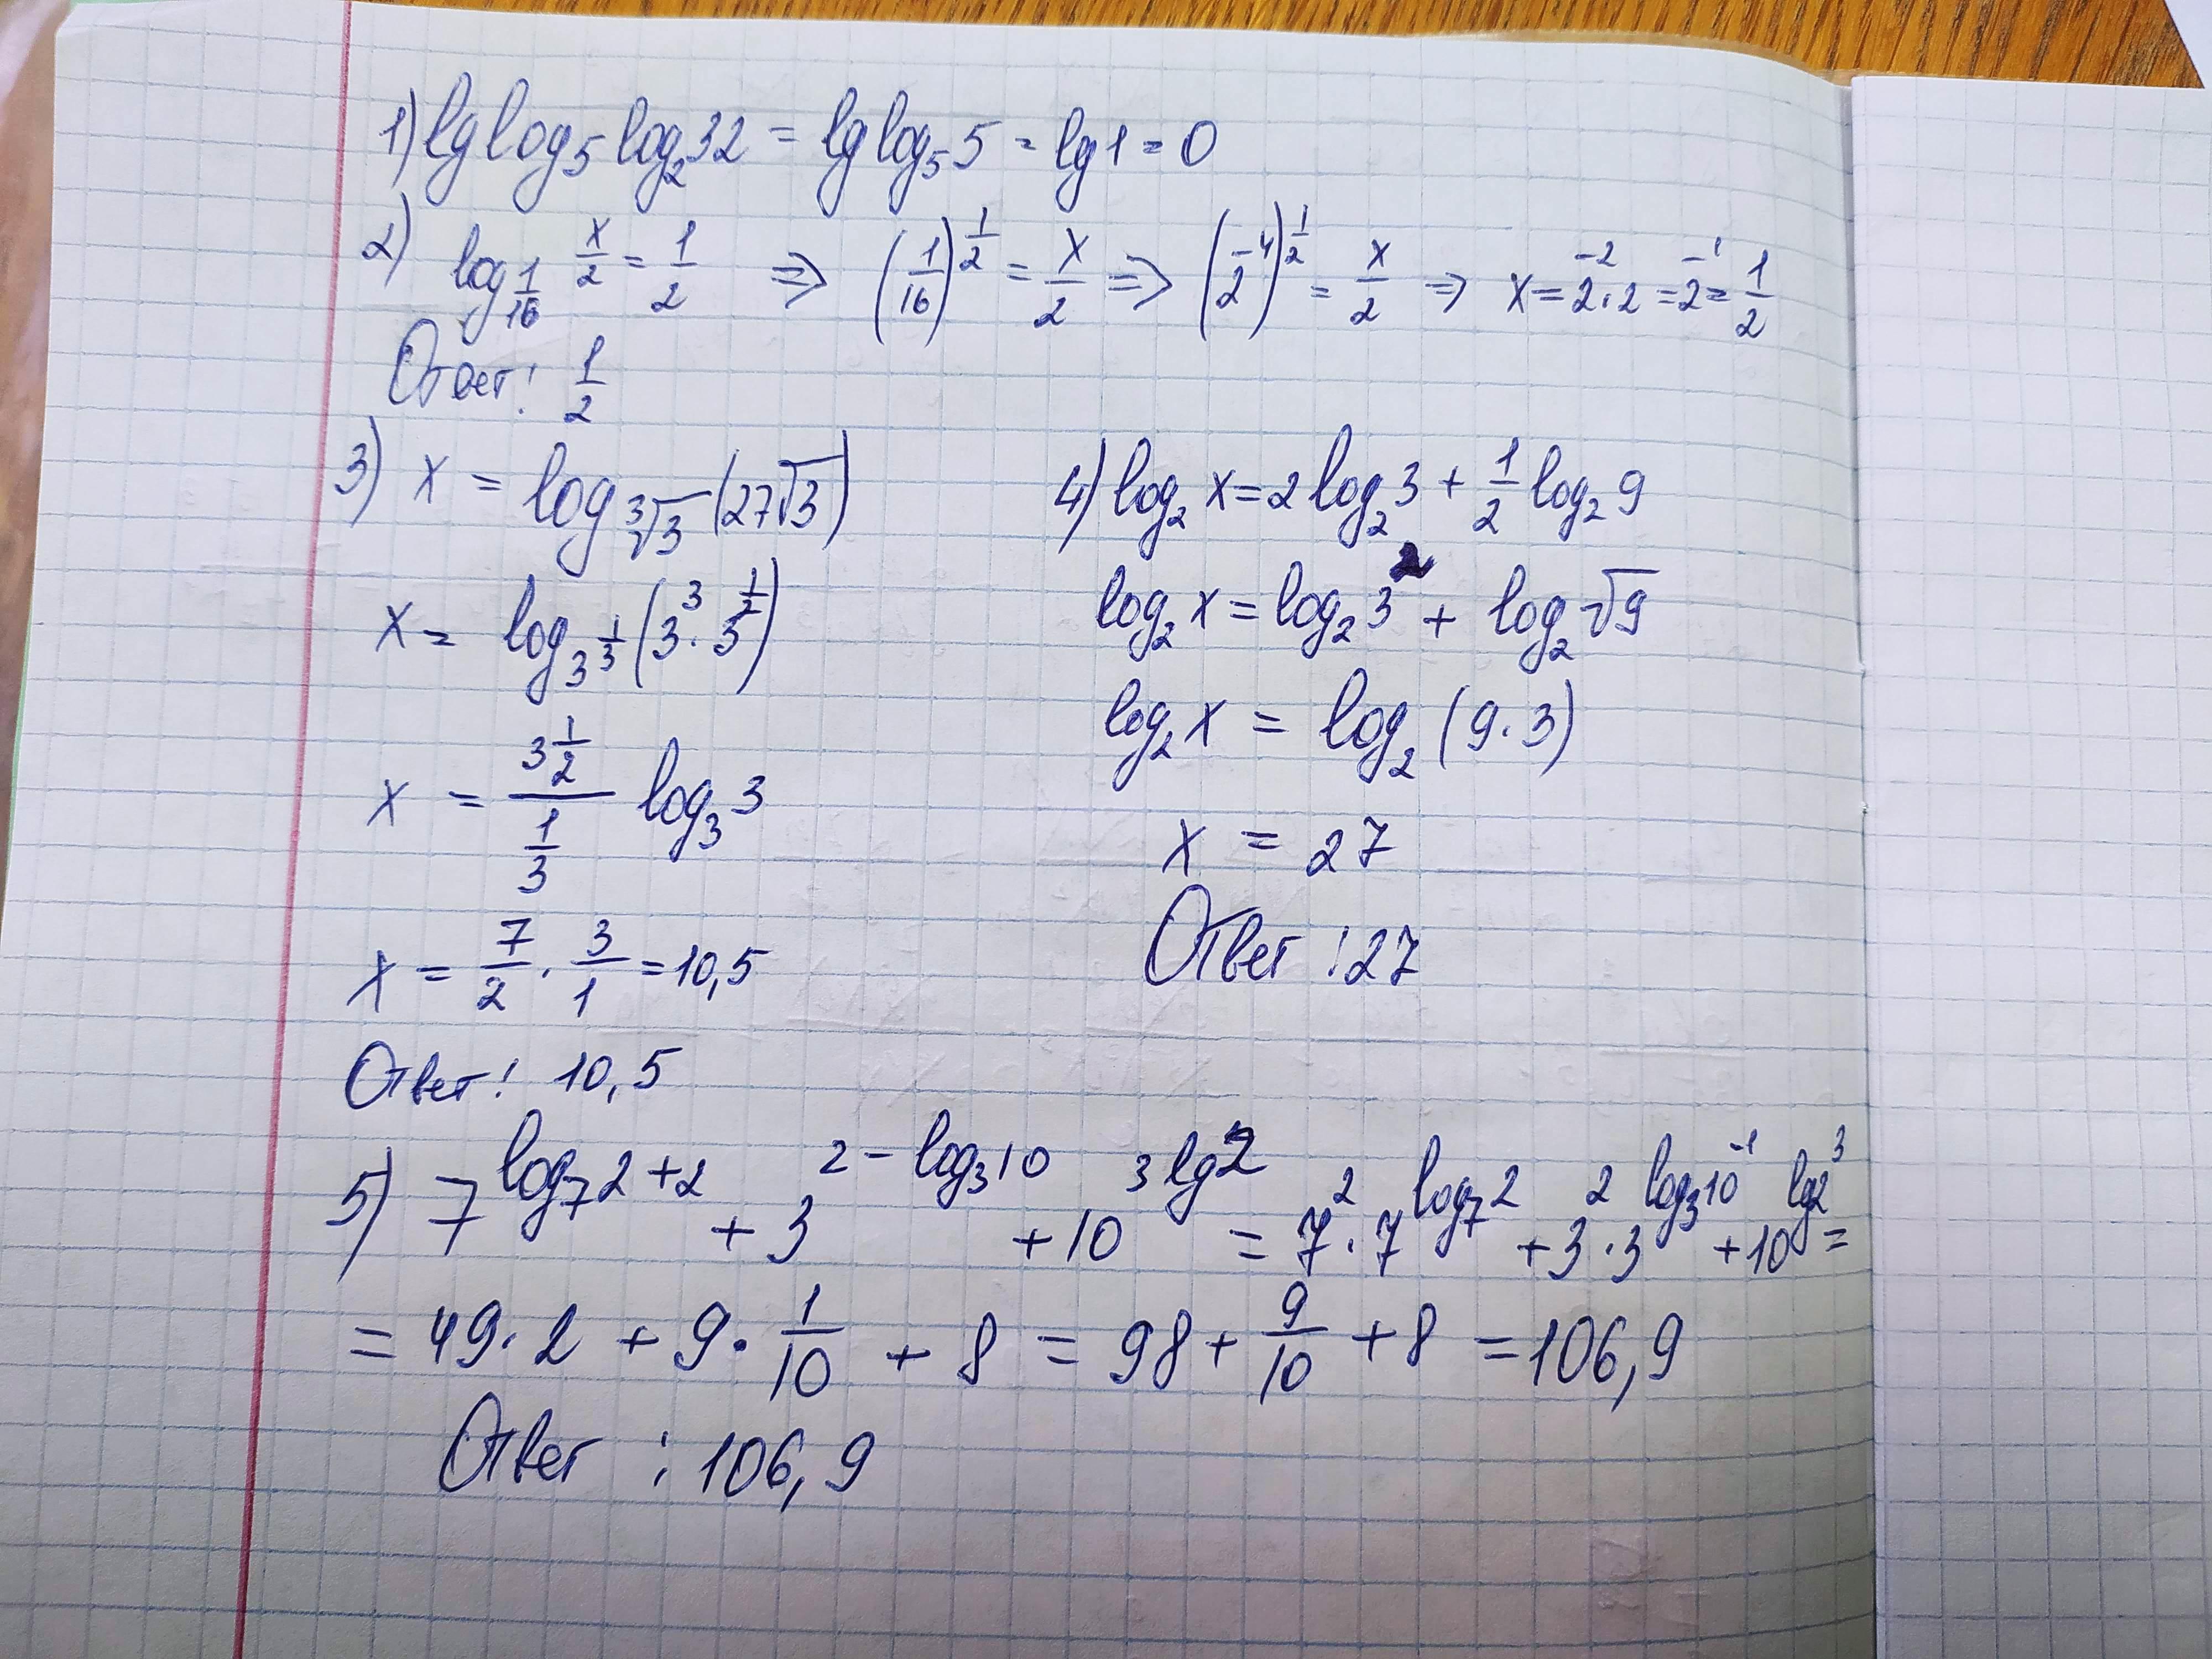 1) lg log₅ log₂ 32 = lg log₅ 5 = lg 1 = 0
2) log_{1/16} x/2 = 1/2 ⇒ (1/16)^{1/2} = x/2 ⇒ (2^{-4})^{1/2} = x/2 ⇒ x = 2^{-2} · 2 = 2^{-1} = 1/2
Ответ: 1/2
3) x = log_{∛3} (27√3)
x = log_{3^{1/3}} (3³ · 3^{1/2})
x = (3 1/2)/(1/3) log₃ 3
x = 7/2 · 3/1 = 10,5
Ответ: 10,5
4) log₂ x = 2 log₂ 3 + 1/2 log₂ 9
log₂ x = log₂ 3² + log₂ √9
log₂ x = log₂ (9 · 3)
x = 27
Ответ: 27
5) 7^{log₇ 2 + 2} + 3^{2 - log₃ 10} + 10^{3 lg 2} = 7² · 7^{log₇ 2} + 3² · 3^{log₃ 10^{-1}} + 10^{lg 2³} =
= 49 · 2 + 9 · 1/10 + 8 = 98 + 9/10 + 8 = 106,9
Ответ: 106,9